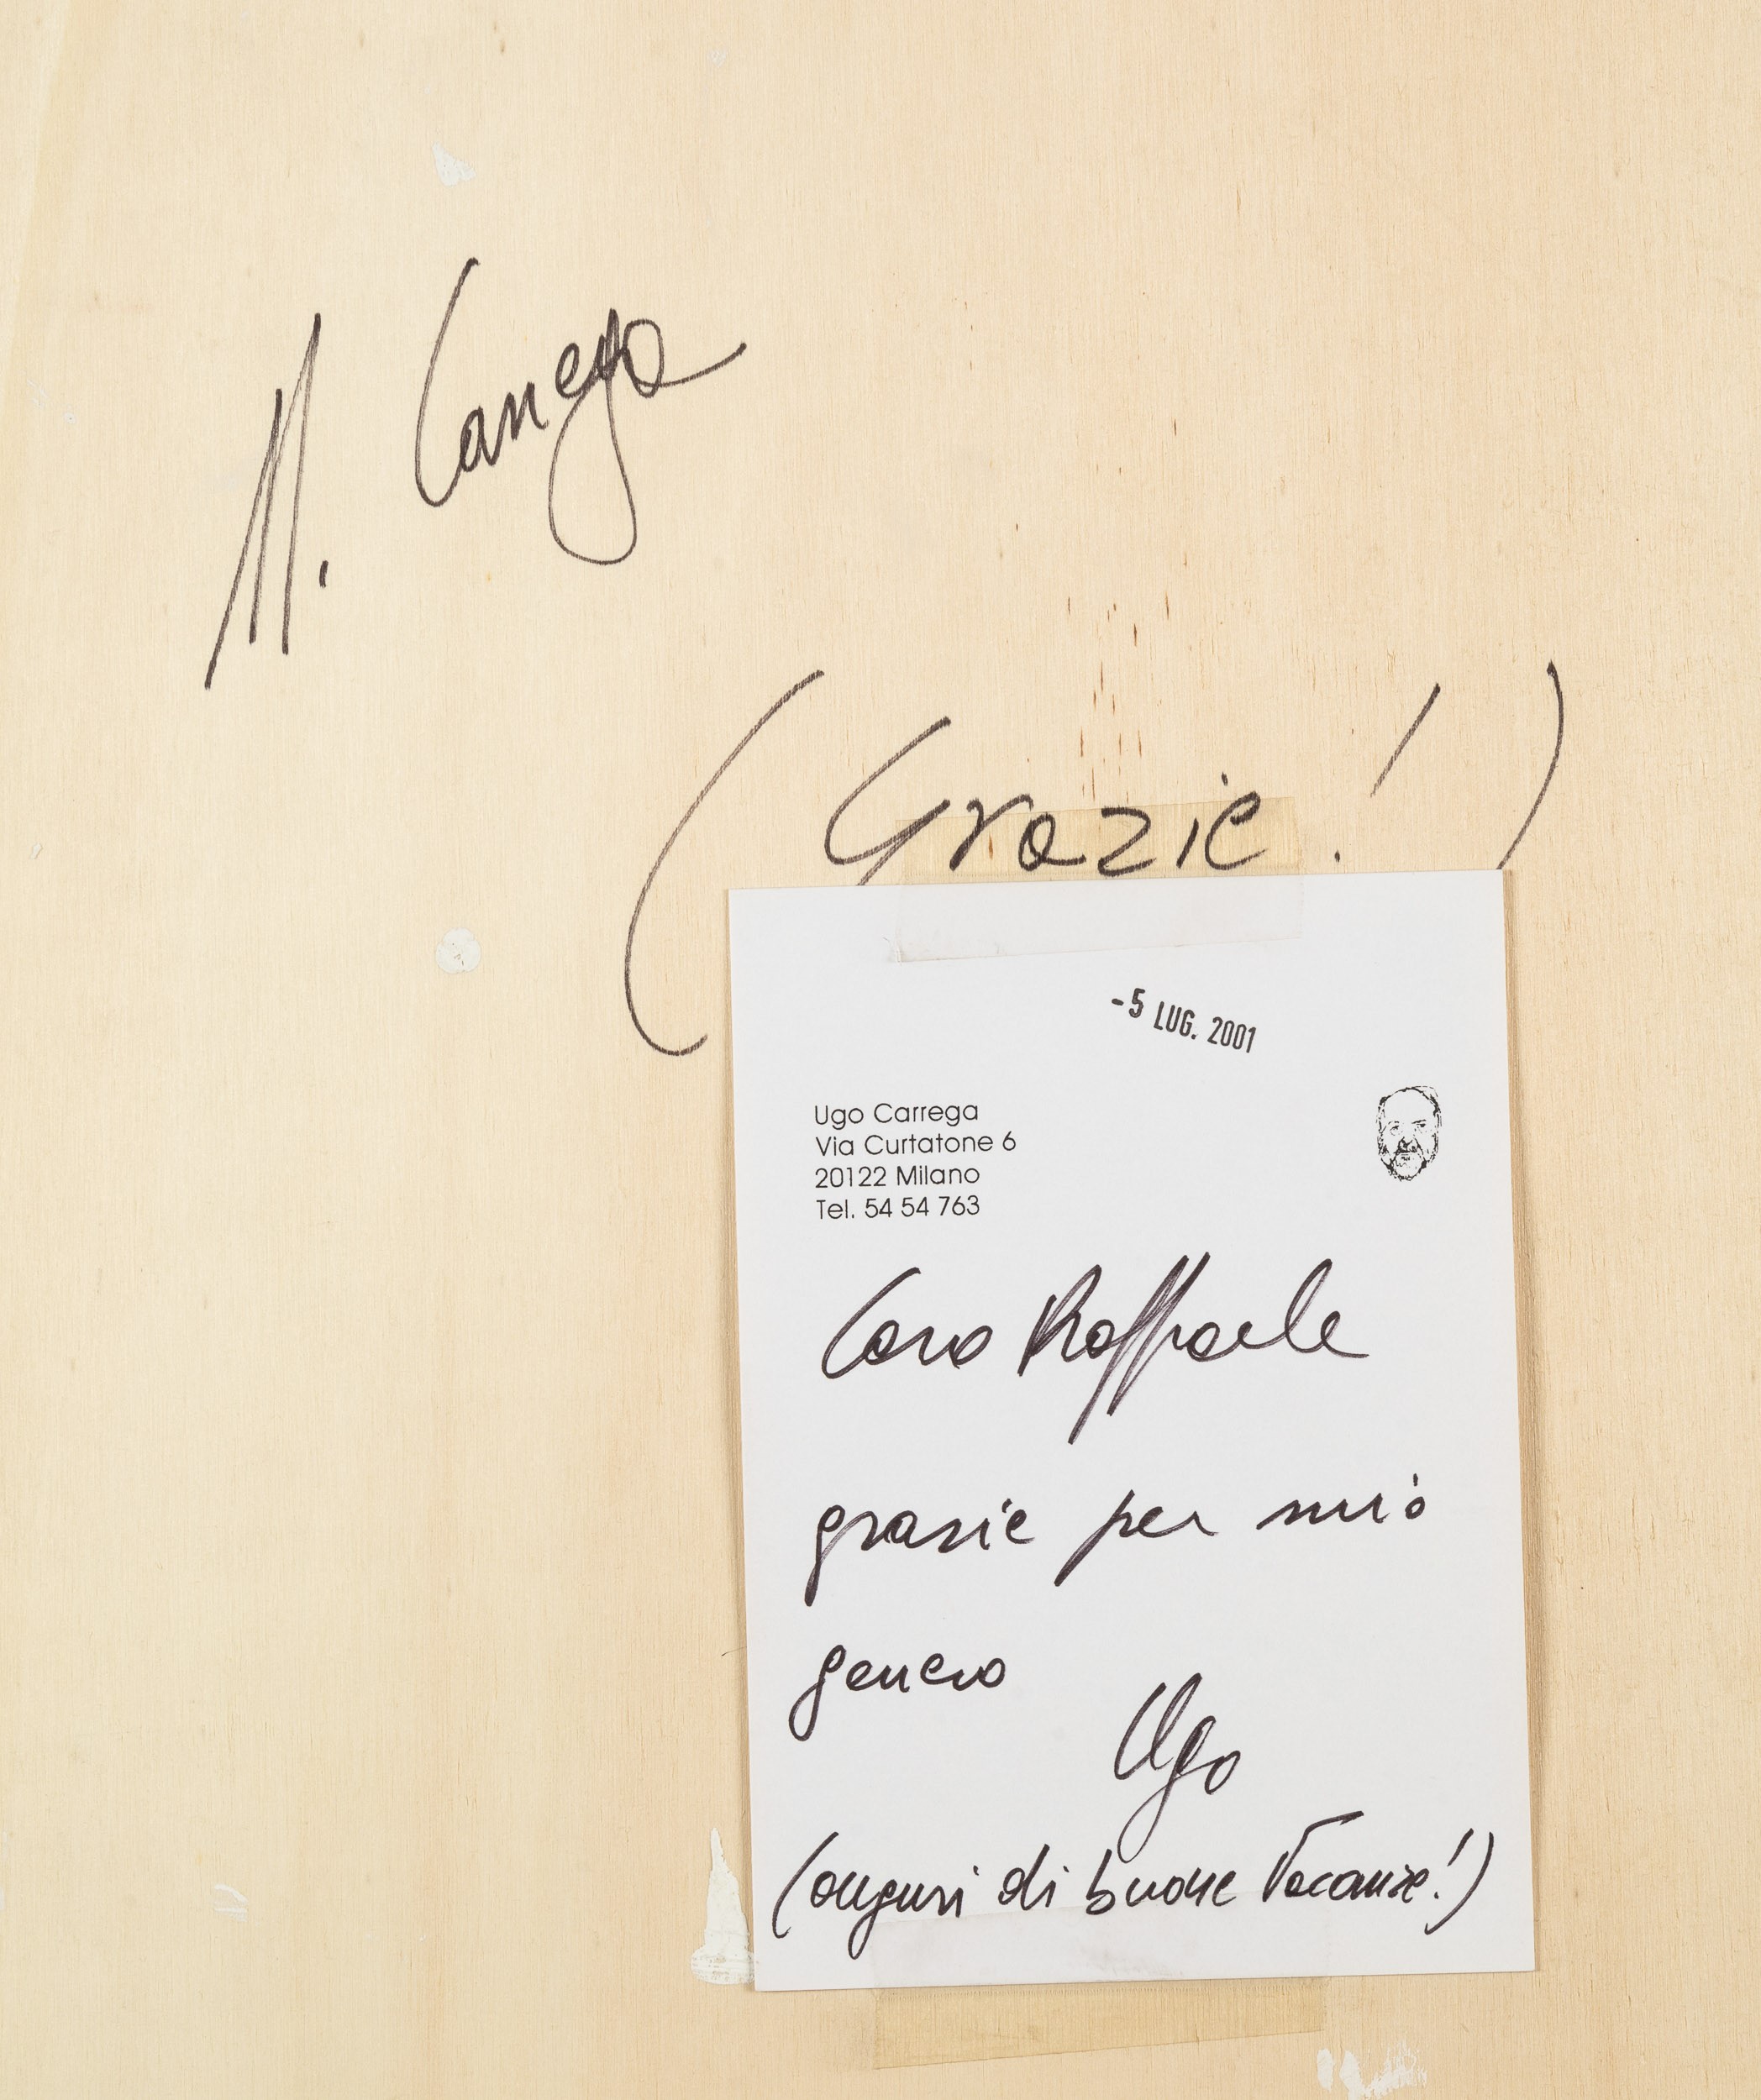 U. Carrega
(Grazie!)
-5 LUG. 2001
Ugo Carrega
Via Curtatone 6
20122 Milano
Tel. 54 54 763
Caro Raffaele
grazie per mio
genero
Ugo
(auguri di buone Vacanze!)